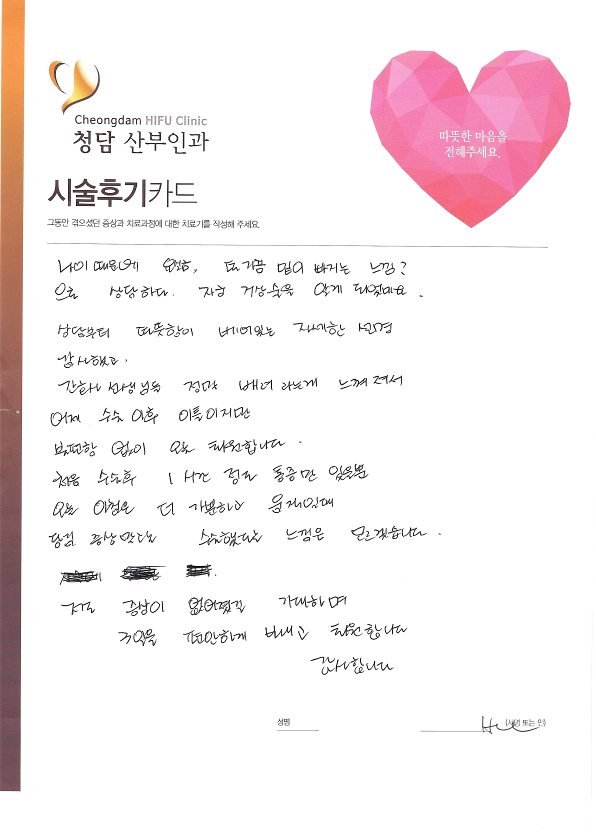 Cheongdam HIFU Clinic
청담 산부인과
따뜻한 마음을
전해주세요.
시술후기카드
그동안 겪으셨던 증상과 치료과정에 대한 치료기를 작성해 주세요.
나이 때문에 밑이 빠지는 느낌?
으로 상담하다. 자궁 되었네요.
상담부터 따뜻함이 베어있는 자세한 설명
감사했고,
간호사 선생님들 정말 배려 느껴져서
어제 수술 이후 이틀이지만
불편함 없이 오늘 퇴원합니다.
처음 수술후 1시간 정도 통증만 있을뿐
오늘 아침은 더 가뿐하고
수술했다는 느낌은 모르겠습니다.
증상이 없어졌길 기대하며
3일을 편안하게 보내고 퇴원합니다
감사합니다
성명
(서명 또는 인)